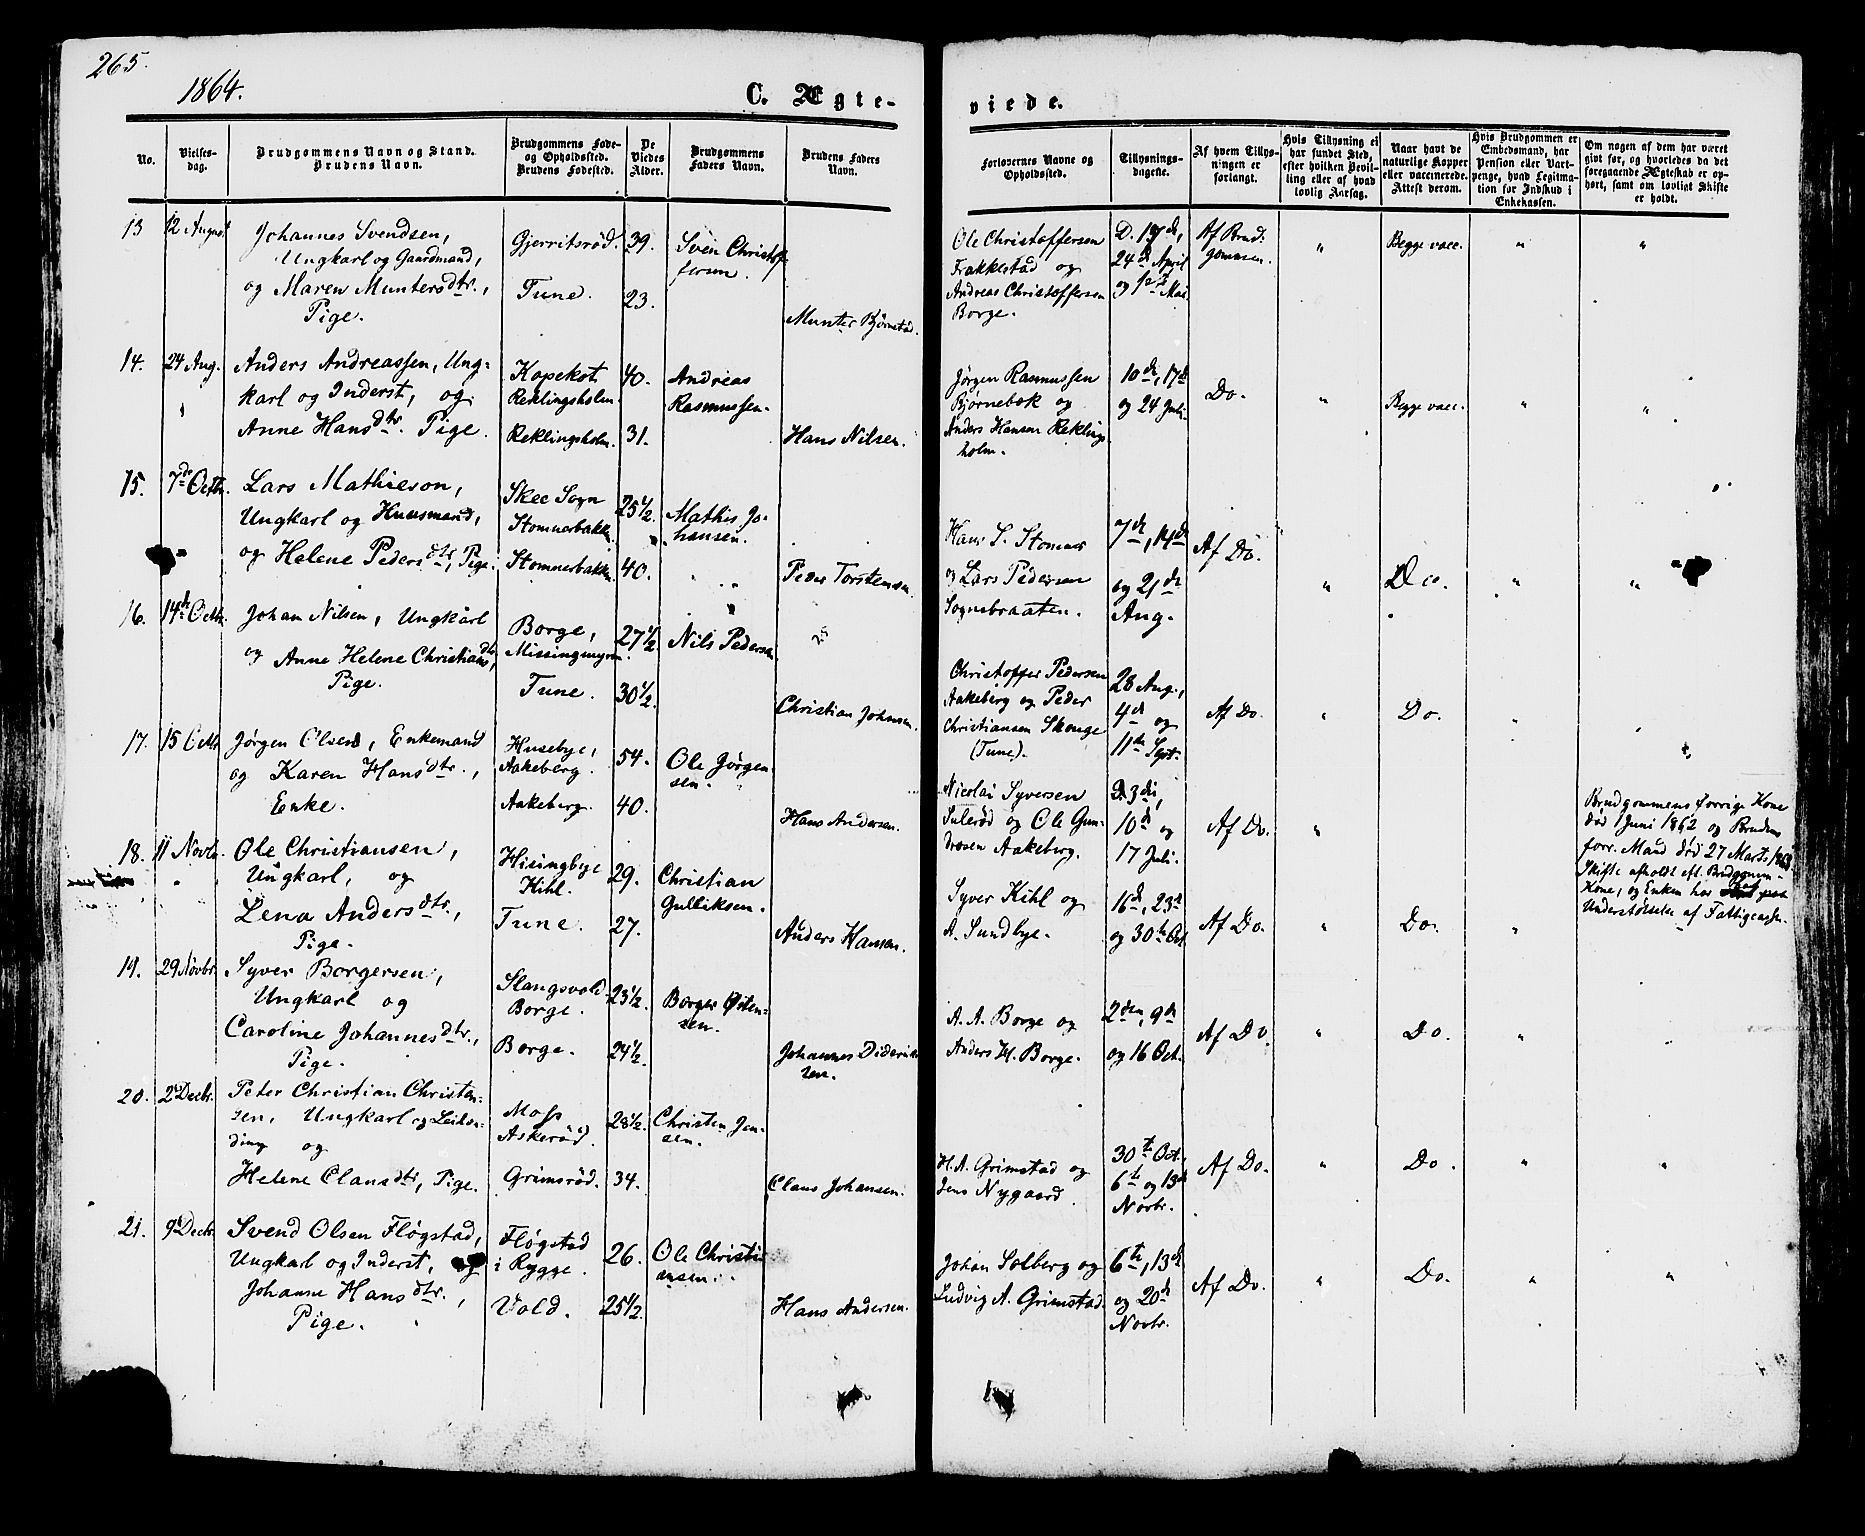 265.
1864.
C. Ægte-
viede.
No.
Vielses-
dag.
Brudgommens Navn og Stand.
Brudens Navn.
Brudgommens Føde-
og Opholdssted.
Brudens Fødested.
De
Viedes
Alder.
Brudgommens
Faders Navn.
Brudens Faders
Navn.
Forlovernes Navne og
Opholdssted.
Tillysnings-
dagene.
Af hvem Tillys-
ningen er
forlangt.
Hvis Tillysning ei
har fundet Sted,
efter hvilken Bevil-
ling eller af hvad
lovlig Aarsag.
Naar havt de
naturlige Kopper
eller vaccinerede.
Attest derom.
Hvis Brudgommen er
Embedsmand, har
Pension eller Vart-
penge, hvad Legitima-
tion for Indskud i
Enkekassen.
Om nogen af dem har været
gift før, og hvorledes da det
foregaaende Ægteskab er op-
hørt, samt om lovligt Skifte
er holdt.
13
12 August
Johannes Svendsen,
Ungkarl og Gaardmand,
og Maren Muntersdtr.,
Pige.
Gjerritsrød.
Tune.
39.
23.
Sven Christof
fersen.
Munter Bjørnstad.
Ole Christoffersen
Frakkestad og
Andreas Christoffersen
Borge.
D. 19de,
24de April
og 1ste Mai.
Af Brud:
gommen.
"
Begge vacc.
"
"
14.
24 Aug.
Anders Andreassen, Ung-
karl og Inderst, og
Anne Hansdtr. Pige.
Kopekot
Reklingsholm.
Reklingsholm.
40.
31.
Andreas
Rasmussen.
Hans Nilsen.
Jørgen Rasmussen
Bjørnebæk og
Anders Hansen Reklings
holm.
10de, 17de
og 24 Juli.
Do.
"
Begge vacc.
"
"
15.
7de Octbr.
Lars Mathieson,
Ungkarl og Huusmand,
og Helene Pedersdtr, Pige.
Skee Sogn
Stomnerbakken
Stomnerbakken
25½.
40.
Mathis Jo-
hansen.
Peder Torstensen
Hans L. Stomner
og Lars Pedersen
Sognsbraaten.
7de, 14de
og 21de
Aug.
Af Do.
"
Do.
"
"
16.
14de Octbr.
Johan Nilsen, Ungkarl
og Anne Helene Christiansdtr,
Pige.
Borge,
Missingmyren.
Tune.
27½
30½.
Nils Pedersen.
25
Christian Johnsen.
Christoffer Pedersen
Aakeberg og Peder
Christiansen Skonge
(Tune).
28 Aug.,
4de og
11te Sept.
Af Do.
Do.
17.
15 Octbr
Jørgen Olsen, Enkemand
og Karen Hansdtr.,
Enke.
Husebye,
Aakeberg.
Aakeberg.
54.
40.
Ole Jørgen
sen.
Hans Andersen.
Nicolai Syversen
Sulerød og Ole Gun-
drosen Aakeberg.
D. 3die,
10de og
17 Juli.
Af Do.
"
Brudgommens forrige Kone
død 1 Juni 1862 og Brudens
forr. Mand død 27 Marts 1863.
Skifte afholdt eft. Brudgommens
Kone, og Enken har
Understøttelse af Fattigcassen.
18.
11 Novbr.
Ole Christiansen,
Ungkarl, og
Lena Andersdtr.,
Pige.
Hisingbye
Kihl.
Tune.
29.
27.
Christian
Gulliksen.
Anders Hansen.
Syver Kihl og
A. Sundbye.
16de, 23de
og 30te Oct.
Af Do.
"
Do.
"
19.
29 Novbr.
Syver Borgersen,
Ungkarl og
Caroline Johannesdtr.,
Pige.
Slangsvold
Borge.
Borge.
23½.
24½.
Borger Østen-
sen.
Johannes Diderik
sen.
A. A. Borge og
Anders H. Borge.
2den, 9de
og 16 Oct.
Af Do.
"
Do.
"
20.
2 Decbr.
Peter Christian Christen-
sen, Ungkarl og Leilæn-
ding og
Helene Clausdtr, Pige.
Moss
Askerød.
Grimsrød.
28½.
34.
Christen Jen-
sen.
Claus Johansen.
H. A. Grimstad og
Jens Nygaard.
30te Oct.,
6te og 13de
Novbr.
Af Do.
"
Do.
"
"
21.
9 Decbr.
Svend Olsen Fløgstad,
Ungkarl og Inderst, og
Johanne Hansdtr.,
Pige.
Fløgstad
i Rygge.
Vold.
26.
25½.
Ole Christi-
ansen.
Hans Andersen.
Johan Solberg og
Ludvig A. Grimstad.
6te, 13de
og 20de
Novbr.
Af Do.
"
Do.
"
"